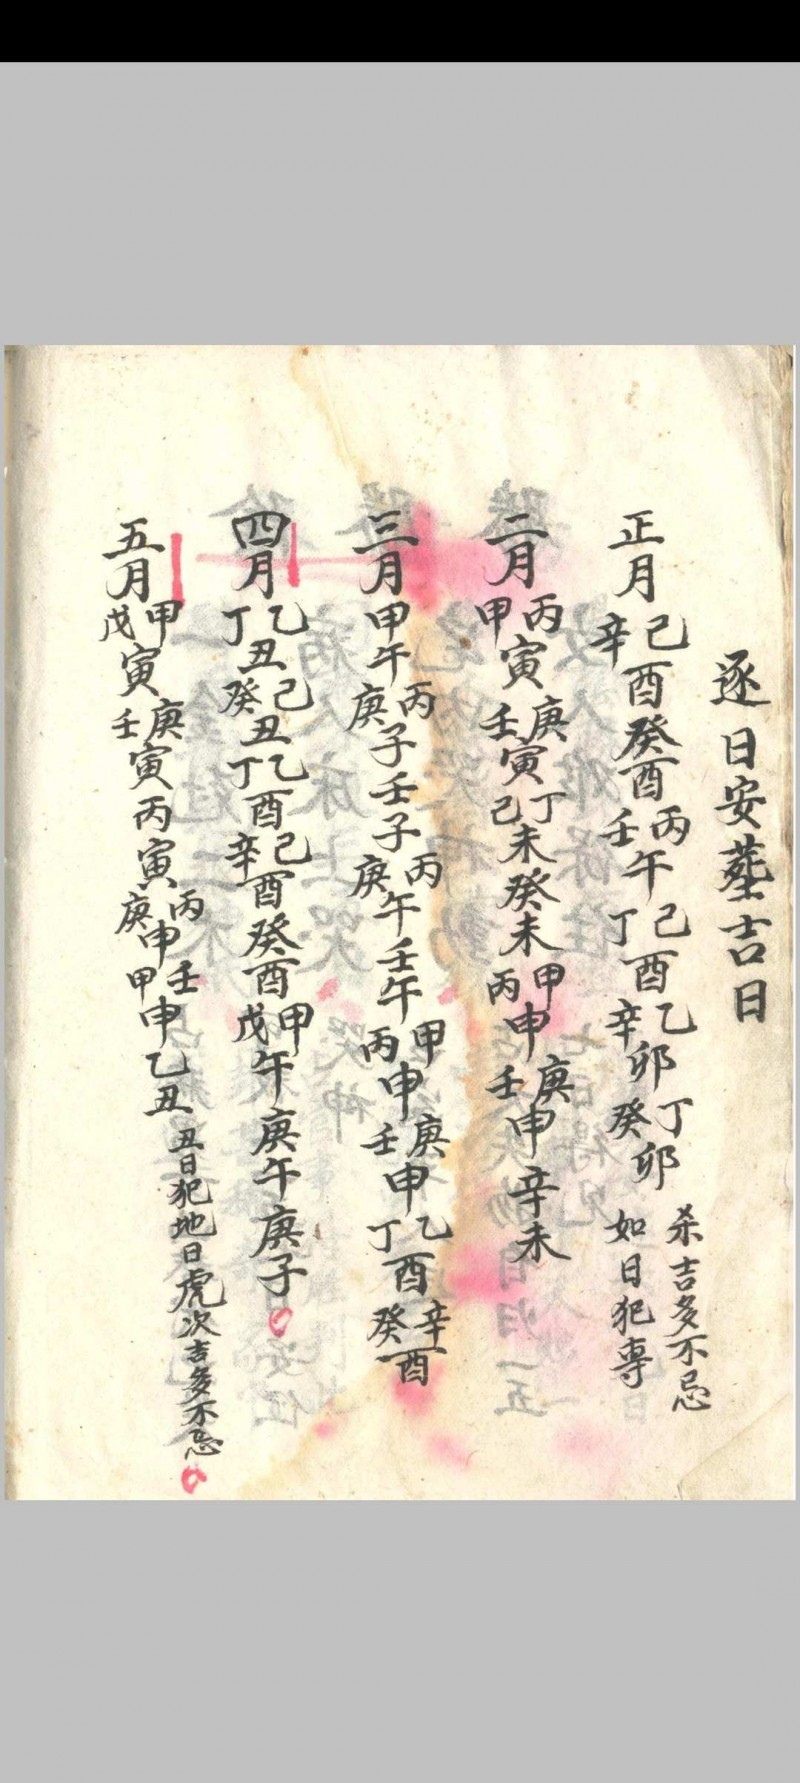 逐日安葬吉日
正月 己辛酉癸酉丙壬午己丁酉乙辛卯丁癸卯 如日犯專杀吉多不忌
二月 丙甲寅庚壬寅丁己未癸未甲丙申庚壬申辛未
三月 甲午丙庚子壬子丙庚午壬午甲丙申庚壬申乙丁酉辛癸酉
四月 乙丁丑己癸丑乙丁酉己辛酉癸酉甲戊午庚午庚子
五月 甲戊寅庚壬寅丙寅丙庚申壬甲申乙丑 丑日犯地日虎次吉多不忌